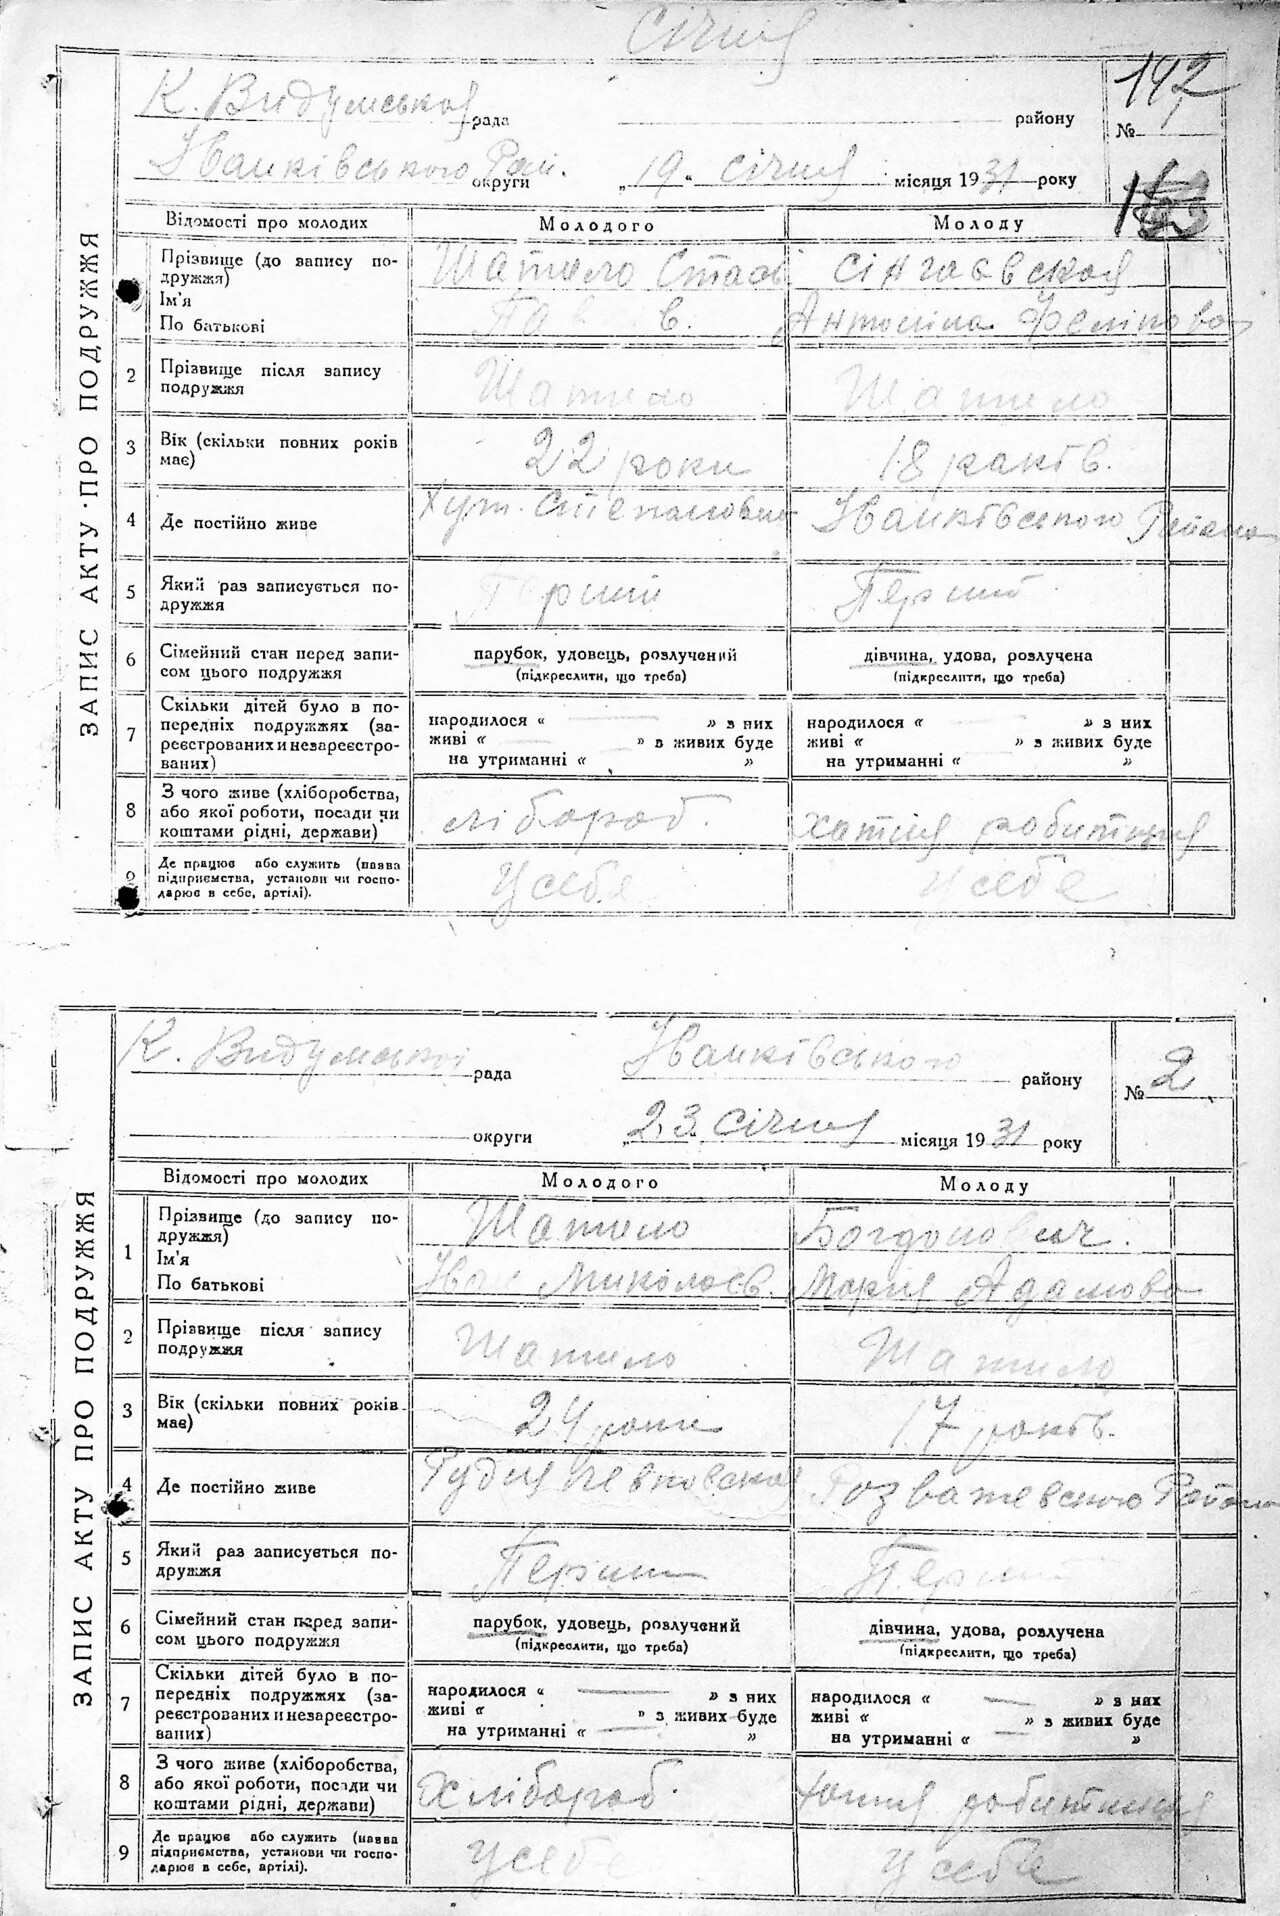 Січня
ЗАПИС АКТУ ПРО ПОДРУЖЖЯ
К. Видумська рада району
№ 1
192
Іванківського Рай. округи „19“ січня місяця 1931 року
Відомості про молодих Молодого Молоду
1 Прізвище (до запису по-
дружжя)
Ім'я
По батькові
Шатило Стась
Сінгаєвская
Антоніна Феліпова
2 Прізвище після запису
подружжя
Шатило Шатило
3 Вік (скільки повних років
має)
22 роки 18 раків.
4 Де постійно живе
Хут. Іванківського Района
5 Який раз записується по-
дружжя
Перший Перший
6 Сімейний стан перед запи-
сом цього подружжя
парубок, удовець, розлучений
(підкреслити, що треба)
дівчина, удова, розлучена
(підкреслити, що треба)
7 Скільки дітей було в по-
передніх подружжях (за-
реєстрованих и незареєстро-
ваних)
народилося « » з них
живі « » в живих буде
на утриманні « »
народилося « » з них
живі « » з живих буде
на утриманні « »
8 З чого живе (хліборобства,
або якої роботи, посади чи
коштами рідні, держави)
хатня робитниця
9 Де працює або служить (назва
підприємства, установи чи госпо-
дарює в себе, артілі).
У себе У себе
ЗАПИС АКТУ ПРО ПОДРУЖЖЯ
К. Видумської рада Іванківського району
№ 2
округи „23“ січня місяця 1931 року
Відомості про молодих Молодого Молоду
1 Прізвище (до запису по-
дружжя)
Ім'я
По батькові
Шатило Богдонович.
Іван Миколаєв. Мария Адамова
2 Прізвище після запису
подружжя
Шатило Шатило
3 Вік (скільки повних років
має)
24 роки 17 років.
4 Де постійно живе
Рудня Розважевского Района
5 Який раз записується по-
дружжя
Перший Перший
6 Сімейний стан перед запи-
сом цього подружжя
парубок, удовець, розлучений
(підкреслити, що треба)
дівчина, удова, розлучена
(підкреслити, що треба)
7 Скільки дітей було в по-
передніх подружжях (за-
реєстрованих и незареєстро-
ваних)
народилося « » з них
живі « » з живих буде
на утриманні « »
народилося « » з них
живі « » з живих буде
на утриманні « »
8 З чого живе (хліборобства,
або якої роботи, посади чи
коштами рідні, держави)
Хлібороб.
9 Де працює або служить (назва
підприємства, установи чи госпо-
дарює в себе, артілі).
У себе У себе